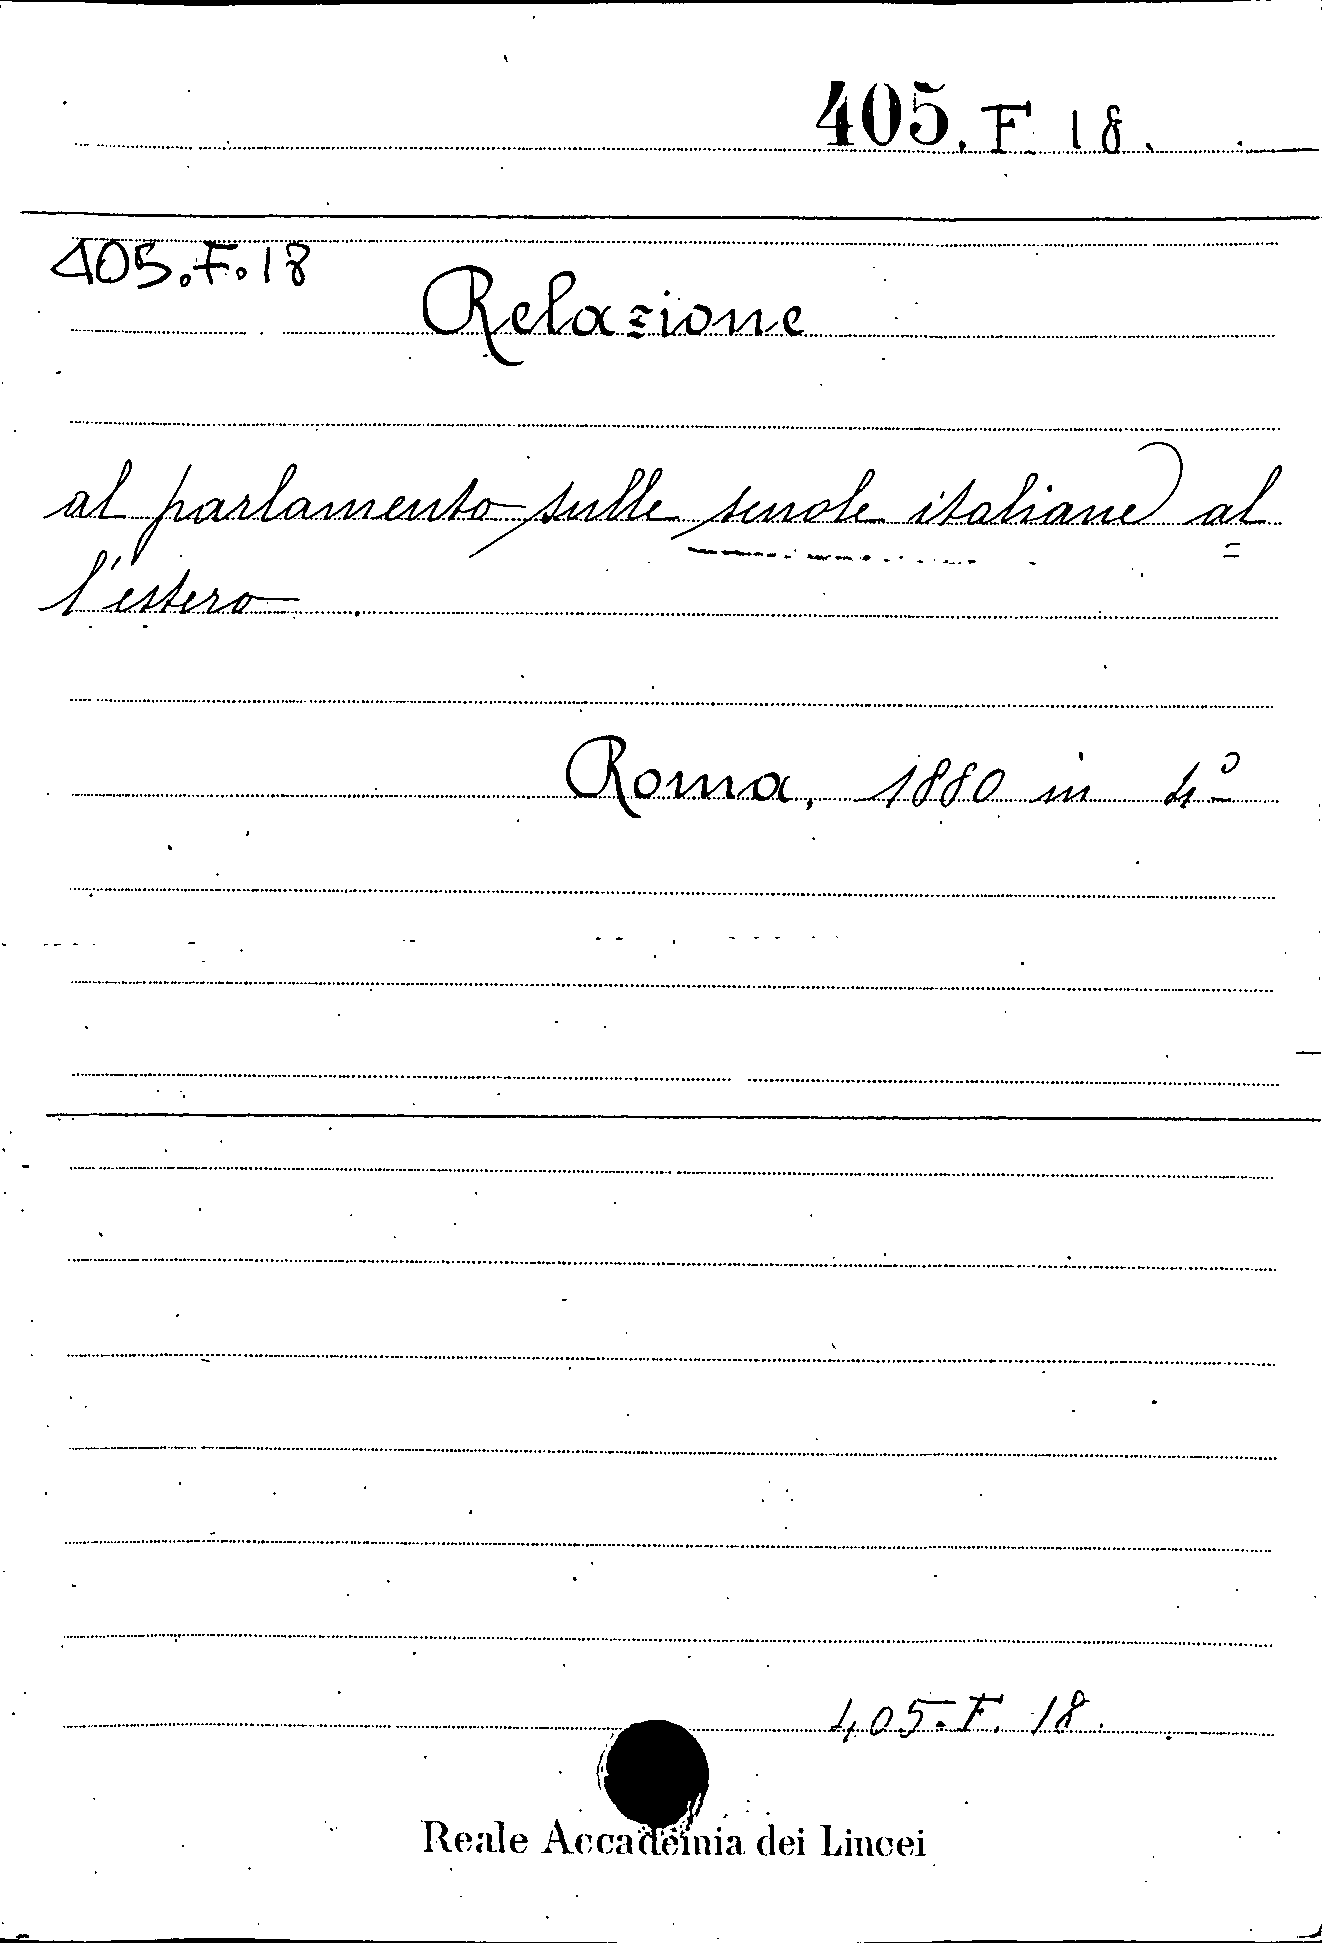 405. F 18.
405.F.18
Relazione
al parlamento sulle scuole italiane al
=
l'estero
Roma, 1880 in 4º
405.F. 18.
Reale Accademia dei Lincei